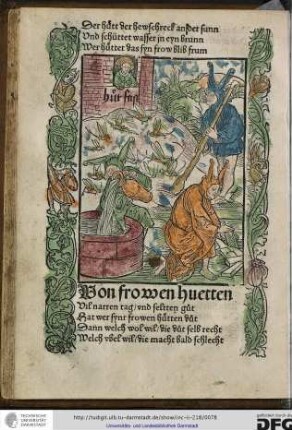 Der hüt der hewschreck an der sunn
Vnd schüttet wasser in eyn brunn
Wer hüttet das syn frow blib frum
hüt fast
Von frowen huetten
Vil narren tag / vnd seltten güt
Hat wer synr frowen hütten düt
Dann welch wol wil / die düt selb recht
Welch übel wil / die macht bald schlecht
TECHNISCHE UNIVERSITÄT DARMSTADT
http://tudigit.ulb.tu-darmstadt.de/show/inc-ii-218/0078
Universitäts- und Landesbibliothek Darmstadt
gefördert durch die
DFG